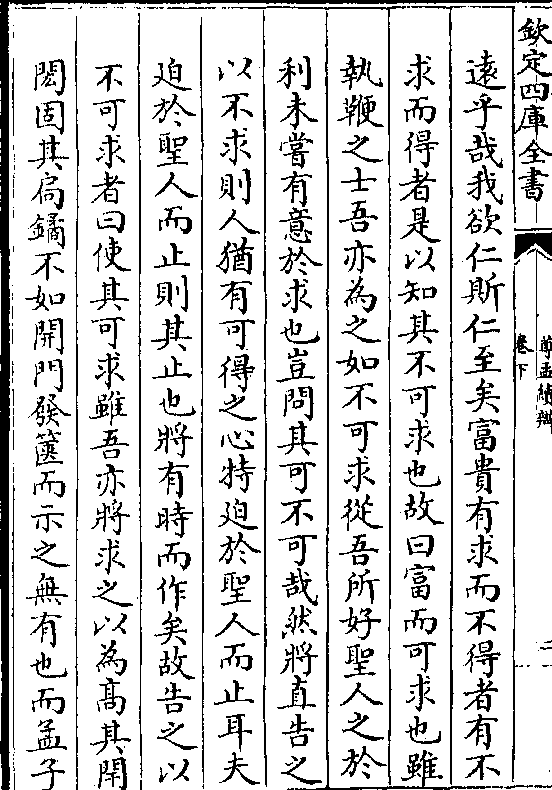 欽定四庫全書
尊孟續辨
卷下
二
遠乎哉我欲仁斯仁至矣富貴有求而不得者有不
求而得者是以知其不可求也故曰富而可求也雖
執鞭之士吾亦為之如不可求從吾所好聖人之於
利未嘗有意於求也豈問其可不可哉然將直告之
以不求則人猶有可得之心特廹於聖人而止耳夫
廹於聖人而止則其止也將有時而作矣故告之以
不可求者曰使其可求雖吾亦將求之以為髙其閈
閎固其扃鐍不如開門發篋而示之無有也而孟子